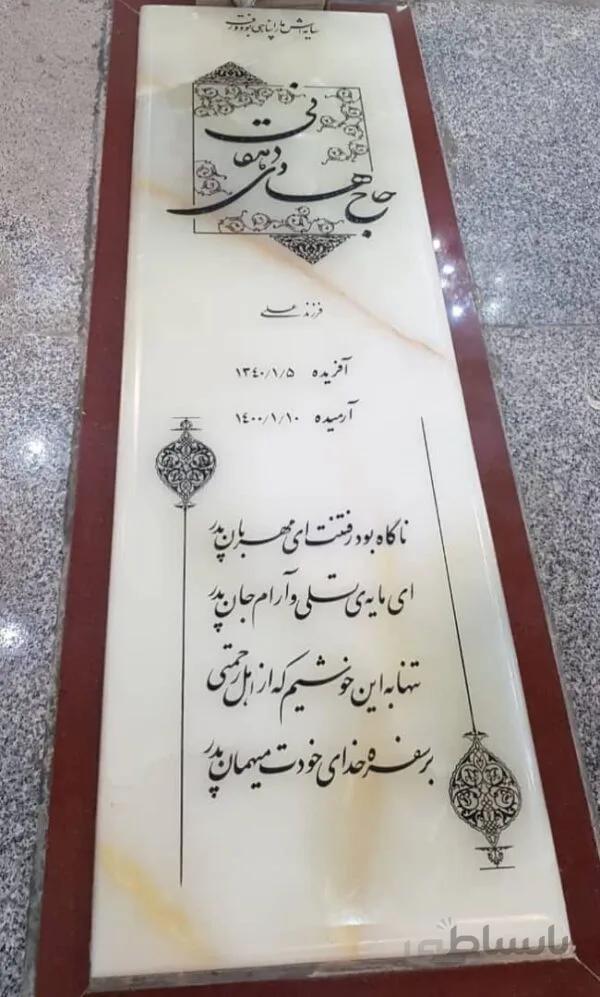 سایه‌اش ما را پناهی بود و رفت
حاج هادی دهقانی
فرزند علی
آفریده ۱۳۴۰/۱/۵
آرمیده ۱۴۰۰/۱/۱۰
ناگاه بود رفتنت ای مهربان پدر
ای مایه‌ی تسلی و آرام جان پدر
تنها به این خوشیم که از اهل رحمتی
بر سفره خدای خودت میهمان پدر
باساطور